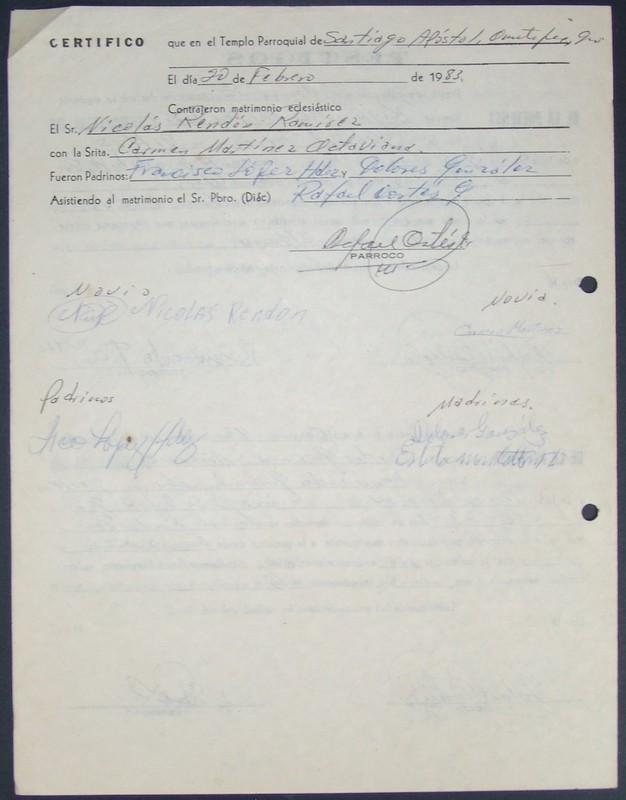 CERTIFICO que en el Templo Parroquial de Santiago Apóstol, Ometepec, Gro
El día 20 de Febrero de 1983.
Contrajeron matrimonio eclesiástico
El Sr. Nicolás Rendón Ramírez
con la Srita. Carmen Martínez Octaviano.
Fueron Padrinos: Francisco López Hdez y Dolores González
Asistiendo al matrimonio el Sr. Pbro. (Diác) Rafael Cortés G
Rafael Cortés
PARROCO
Novio
Novia.
NICOLAS Rendon
Carmen Martinez
Padrinos
Madrinas.
Fco Lopez Hdez
Dolores González